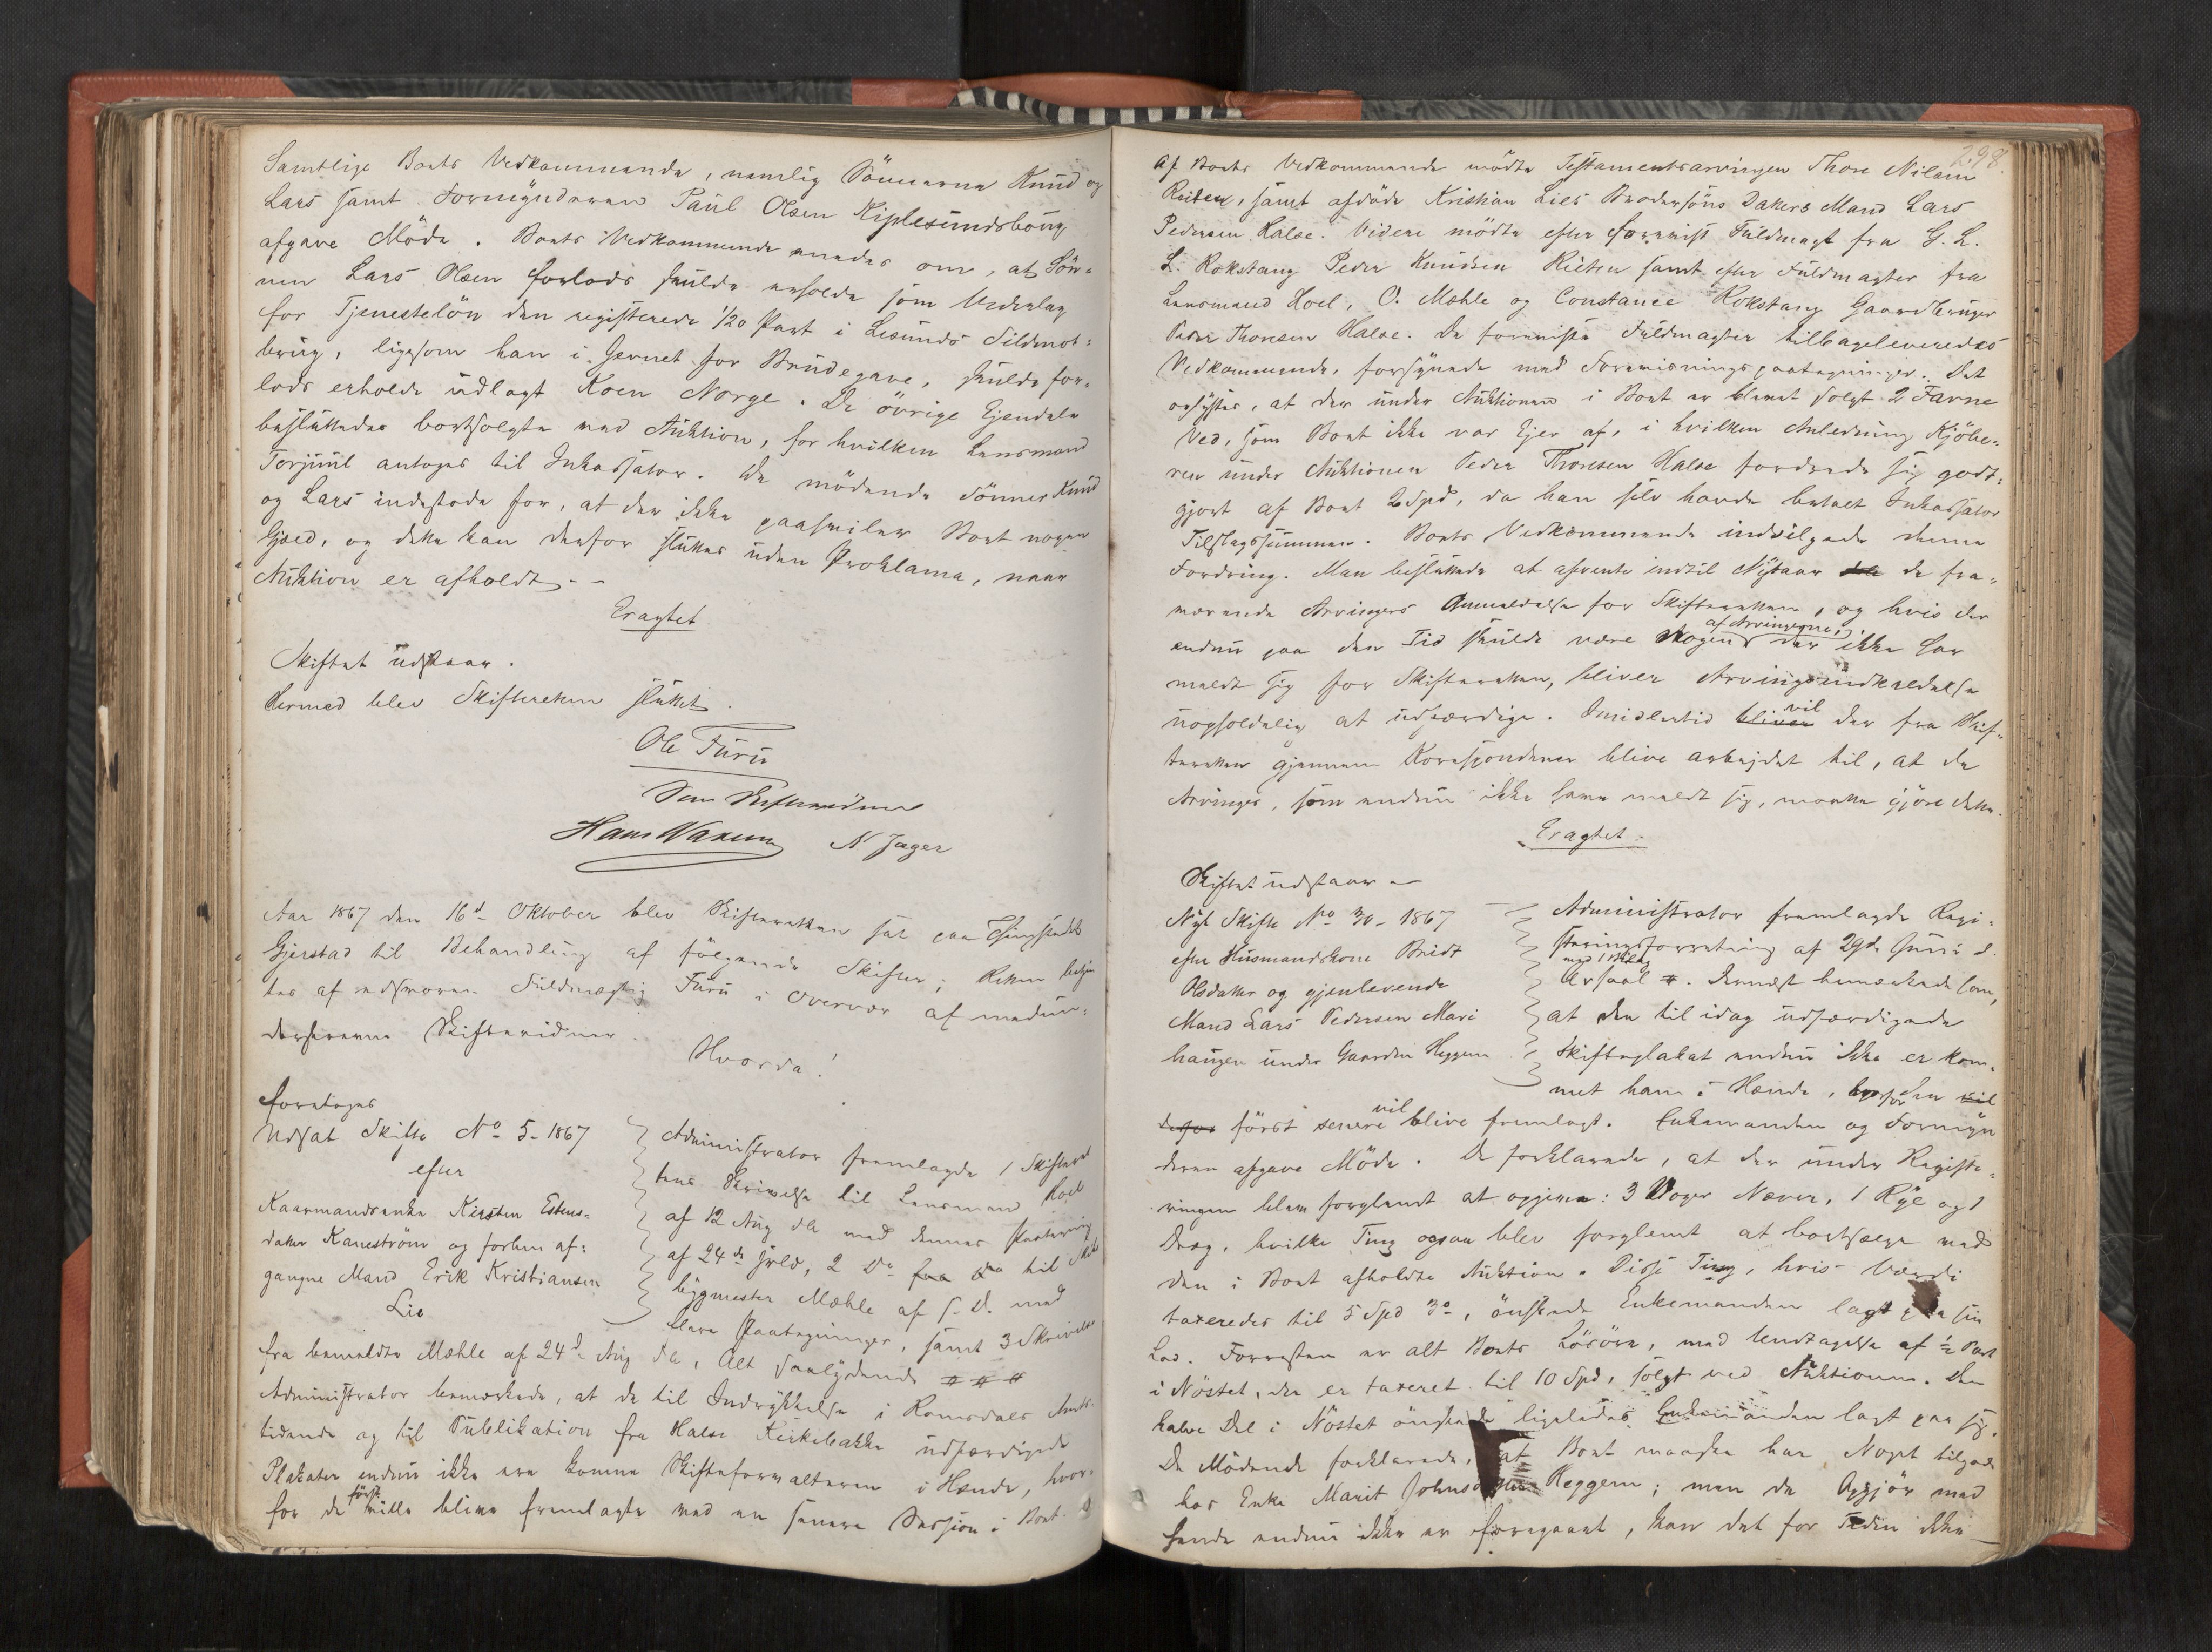 Samtlige Boets Vedkommende, nemlig Sönnerne Knud og
Lars samt Formynderen Paul Olsen Kiplesundsboug
afgave Möde. Boets Vedkommende enedes om, at Sön-
nen Lars Olsen forlods skulde erholde som Vederlag
for Tjenestelön den registerede 1/20 Part i Lesunds Sildenot-
brug, ligesom han i Gevnet for Brudegave, skulde for-
lods erholde udlagt Koen Norge. De övrige Eiendele
besluttedes bortsolgte ved Auktion, for hvilken Lensmand
Torjuul antoges til Inkassator. De mödende Sönner Knud
og Lars indestode for, at der ikke paahviler Boet nogen
Gjæld, og dette kan derfor sluttes uden Proklama, naar
Auktion er afholdt. -
Eragtet
Skiftet udstaar.
Dermed blev Skifteretten sluttet.
Ole Furu
Som Skiftevidner
Hans Naxem N Jager
Aar 1867 den 16d Oktober blev Skifteretten sat paa Thingstedet
Gjerstad til Behandling af fölgende Skifter; Retten betjen
tes af edsvoren Fuldmægtig Furu i Overvær af medun-
derskrevne Skiftevidner.
Hvorda!
foretoges
Udsat Skifte No 5-1867
efter
Kaarmandsenke Kirsten Estens-
datter Kaneström og forhen af-
gangne Mand Erik Kristiansen
Lie
Administrator fremlagde 1 Skifteret
tens Skrivelse til Lensmand Hoel
af 12 Aug da med dennes Paategning
af 24de hjvld, 2 Do fra Do til Skibs
bygmester Mæhle af s. D. med
flere Paategninger, samt 3 Skrivelse
fra bemeldte Mæhle af 24d Aug da, Alt saalydende # # #
Administrator bemærkede, at de til Indrykkelse i Romsdals Amts-
tidende og til Publikation fra Halse Kirkebakke udfærdigede
Plakater endnu ikke ere komne Skifteforvalteren i Hænde, hvor-
for de först ville blive fremlagte ved en senere Session i Boet.
298.
Af Boets Vedkommende mödte Testamentsarvingen Thore Nilsen
Reiten, samt afdöde Kristian Lies Brodersöns Datters Mand Lars
Pedersen Halse. Videre mödte efter forevist Fuldmagt fra G. L.
L. Rokstang Peder Knudsen Reiten samt efter Fuldmagter fra
Lensmand Hoel, O. Mæhle og Constance Rokstang Gaardbruger
Peder Thoresen Halse. De foreviste Fuldmagter tilbageleveredes
Vedkommende, forsynede med Forevisningspaategninger. Det
oplystes, at der under Auktionen i Boet er blevet solgt 2 Favne
Ved, som Boet ikke var Eier af, i hvilken Anledning Kjöbe-
ren under Auktionen Peder Thoresen Halse fordrede sig godt-
gjort af Boet 2 Spd, da han selv havde betalt Inkassator
Tilslagssummen. Boets Vedkommende indvilgede denne
Fordring. Man besluttede at afvente indtil Nytaar de fra-
værende Arvingers Anmeldelse for Skifteretten, og hvis der
endnu paa den Tid skulde være Nogen af Arvingerne, der ikke har
meldt sig for Skifteretten, bliver Arvingsindkaldelse
uopholdelig at udfærdige. Imidlertid bliver vil der fra Skif-
teretten gjennem Korrespondence blive arbejdet til, at de
Arvinger, som endnu ikke have meldt sig, maatte gjöre dette.
Eragtet:
Skiftet udstaar.
Nyt Skifte No 30-1867
efter Husmandskone Beret
Olsdatter og gjenlevende
Mand Lars Pedersen Mari
haugen under Gaarden Heggem
Administrator fremlagde Regi-
streringsforretning af 29de Juni d.
med 1 Bilag
Arsaal #. Dernæst bemærkede han,
at den til idag udfærdigede
Skifteplakat endnu ikke er kom-
met ham i Hænde, hvorfor den vil
derfor först senere vil blive fremlagt. Enkemanden og Formyn
deren afgave Möde. De forklarede, at der under Registe-
ringen blev forglemt at opgives: 3 Voger Never, 1 Rye og 1
Dræg, hvilke Ting ogsaa blev forglemt at bortsælge ved
den i Boet afholdte Auktion. Disse Ting, hvis Værdi
taxeredes til 5 Spd 3o, önskede Enkemanden lagt paa sin
Lod. Forresten er alt Boets Lösöre, med Undtagelse af 1/2 Part
i Nöstet, der er taxeret til 10 Spd, solgt ved Auktionen. Den
halve Del i Nöstet önskede ligeledes Enkemanden lagt paa sig.
De Mödende forklarede, at Boet maaske har Noget tilgode
hos Enke Marit Johnsdatter Heggem; men da Opgjör med
hende endnu ikke er foregaaet, kan det for Tiden ikke